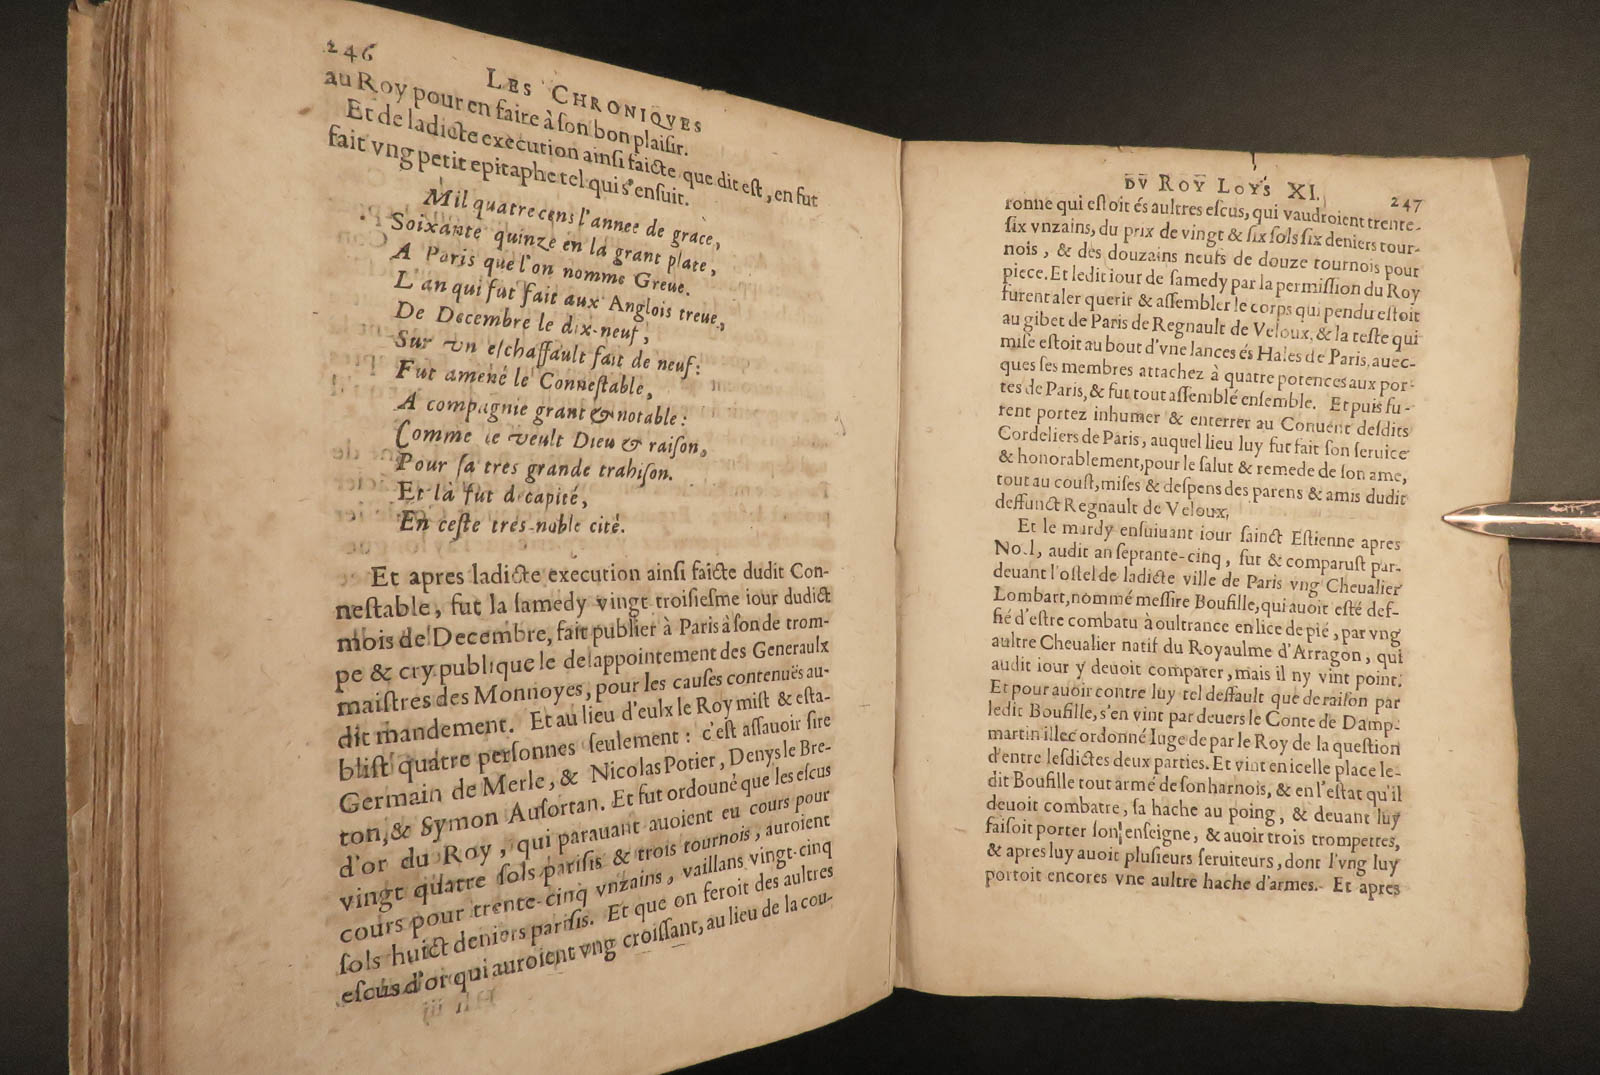 246
LES CHRONIQVES
au Roy pour en faire à ſon bon plaiſir.
Et de ladicte execution ainſi faicte que dit eſt, en fut
fait vng petit epitaphe tel qui s'enſuit.
Mil quatre cens l'annee de grace,
Soixante quinze en la grant place,
A Paris que l'on nomme Greue.
L'an qui fut fait aux Anglois treue,
De Decembre le dix-neuf,
Sur vn eſchaffault fait de neuf:
Fut amené le Conneſtable,
A compagnie grant & notable:
Comme le veult Dieu & raiſon,
Pour ſa tres grande trahiſon.
Et là fut decapité,
En ceſte tres-noble cité.
Et apres ladicte execution ainſi faicte dudit Con-
neſtable, fut la ſamedy vingt troiſieſme iour dudict
mois de Decembre, fait publier à Paris à ſon de trom-
pe & cry publique le deſappointement des Generaulx
maiſtres des Monnoyes, pour les cauſes contenuës au-
dit mandement. Et au lieu d'eulx le Roy miſt & eſta-
bliſt quatre perſonnes ſeulement: c'eſt aſſauoir ſire
Germain de Merle, & Nicolas Potier, Denys le Bre-
ton, & Symon Auſortan. Et fut ordouné que les eſcus
d'or du Roy, qui parauant auoient eu cours pour
vingt quatre ſols pariſis & trois tournois, auroient
cours pour trente-cinq vnzains, vaillans vingt-cinq
ſols huict deniers pariſis. Et que on feroit des aultres
eſcus d'or qui auroient vng croiſſant, au lieu de la cou-
DV ROY LOYS XI.
247
ronne qui eſtoit és aultres eſcus, qui vaudroient trente-
ſix vnzains, du prix de vingt & ſix ſols ſix deniers tour-
nois, & des douzains neufs de douze tournois pour
piece. Et ledit iour de ſamedy par la permiſſion du Roy
furent aler querir & aſſembler le corps qui pendu eſtoit
au gibet de Paris de Regnault de Veloux, & la teſte qui
miſe eſtoit au bout d'vne lances és Hales de Paris, auec-
ques ſes membres attachez à quatre potences aux por-
tes de Paris, & fut tout aſſemblé enſemble. Et puis fu-
rent portez inhumer & enterrer au Conuent deſdits
Cordeliers de Paris, auquel lieu luy fut fait ſon ſeruice
& honorablement, pour le ſalut & remede de ſon ame,
tout au couſt, miſes & deſpens des parens & amis dudit
deffunct Regnault de Veloux,
Et le mardy enſuiuant iour ſainct Eſtienne apres
Noel, audit an ſeptante-cinq, fut & comparuſt par-
deuant l'oſtel de ladicte ville de Paris vng Cheualier
Lombart, nommé meſſire Bouſille, qui auoit eſté def-
fié d'eſtre combatu à oultrance en lice de pié, par vng
aultre Cheualier natif du Royaulme d'Arragon, qui
audit iour y deuoit comparer, mais il ny vint point.
Et pour auoir contre luy tel deffault que de raiſon par
ledit Bouſille, s'en vint par deuers le Conte de Damp-
martin illec ordonné Iuge de par le Roy de la queſtion
d'entre leſdictes deux parties. Et vint en icelle place le-
dit Bouſille tout armé de ſon harnois, & en l'eſtat qu'il
deuoit combatre, ſa hache au poing, & deuant luy
faiſoit porter ſon enſeigne, & auoir trois trompettes,
& apres luy auoit pluſieurs ſeruiteurs, dont l'vng luy
portoit encores vne aultre hache d'armes. Et apres